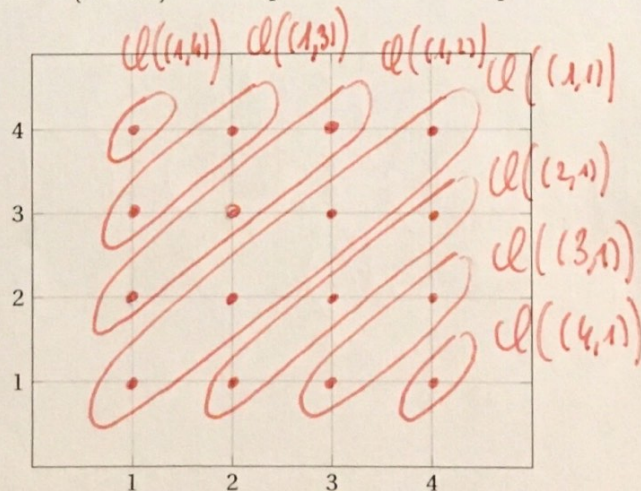 Cl((1,4)) Cl((1,3)) Cl((1,2)) Cl((1,1))
4
Cl((2,1))
3
Cl((3,1))
2
Cl((4,1))
1
1 2 3 4